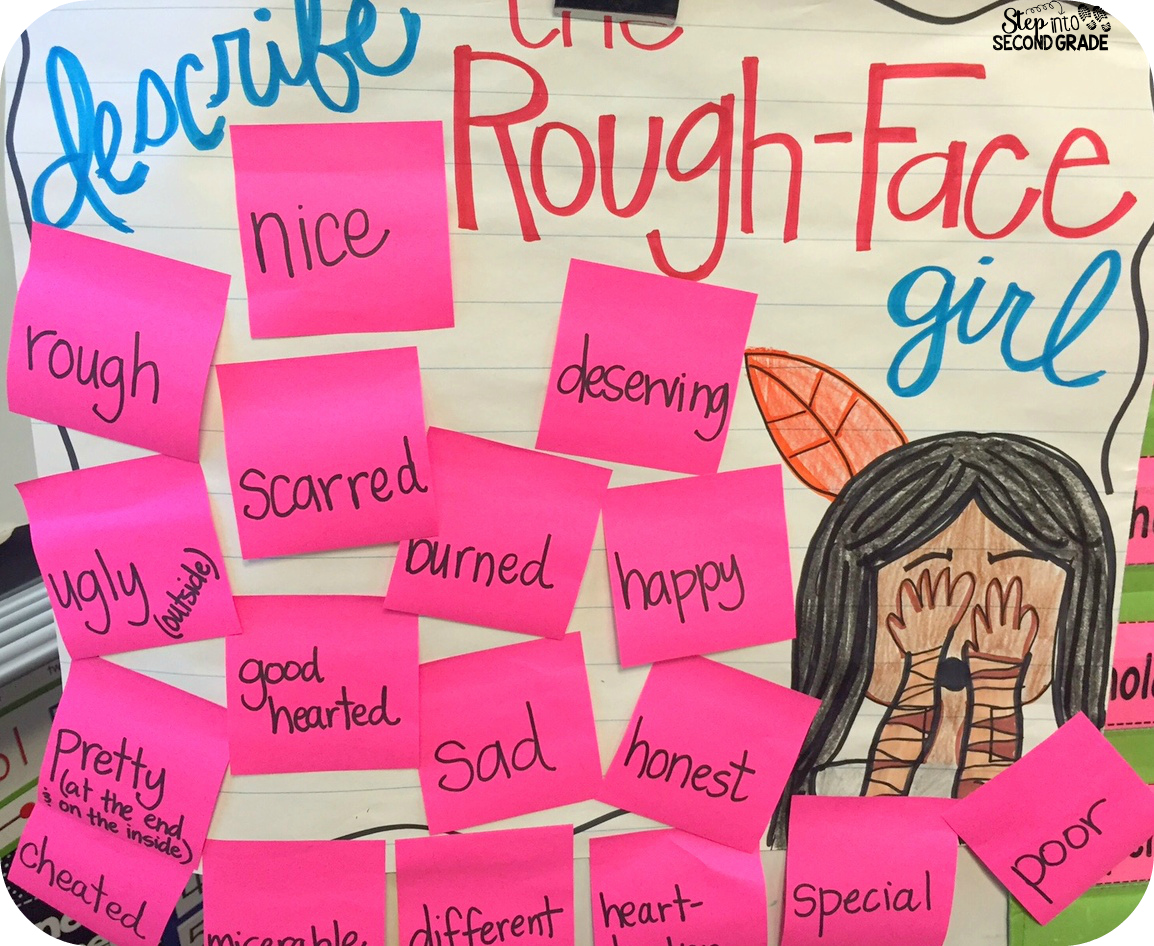 describe
the
Rough-Face
girl
Step into
SECOND GRADE
nice
rough
deserving
scarred
burned
happy
ugly
(outside)
good
hearted
sad
honest
pretty
(at the end
& on the inside)
cheated
miserable
different
heart-
special
poor